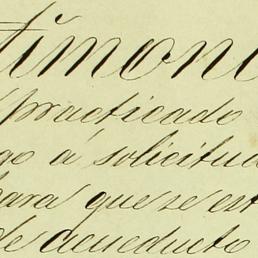 timoni
practicado
go á solicitu
para que se est
de acueducto